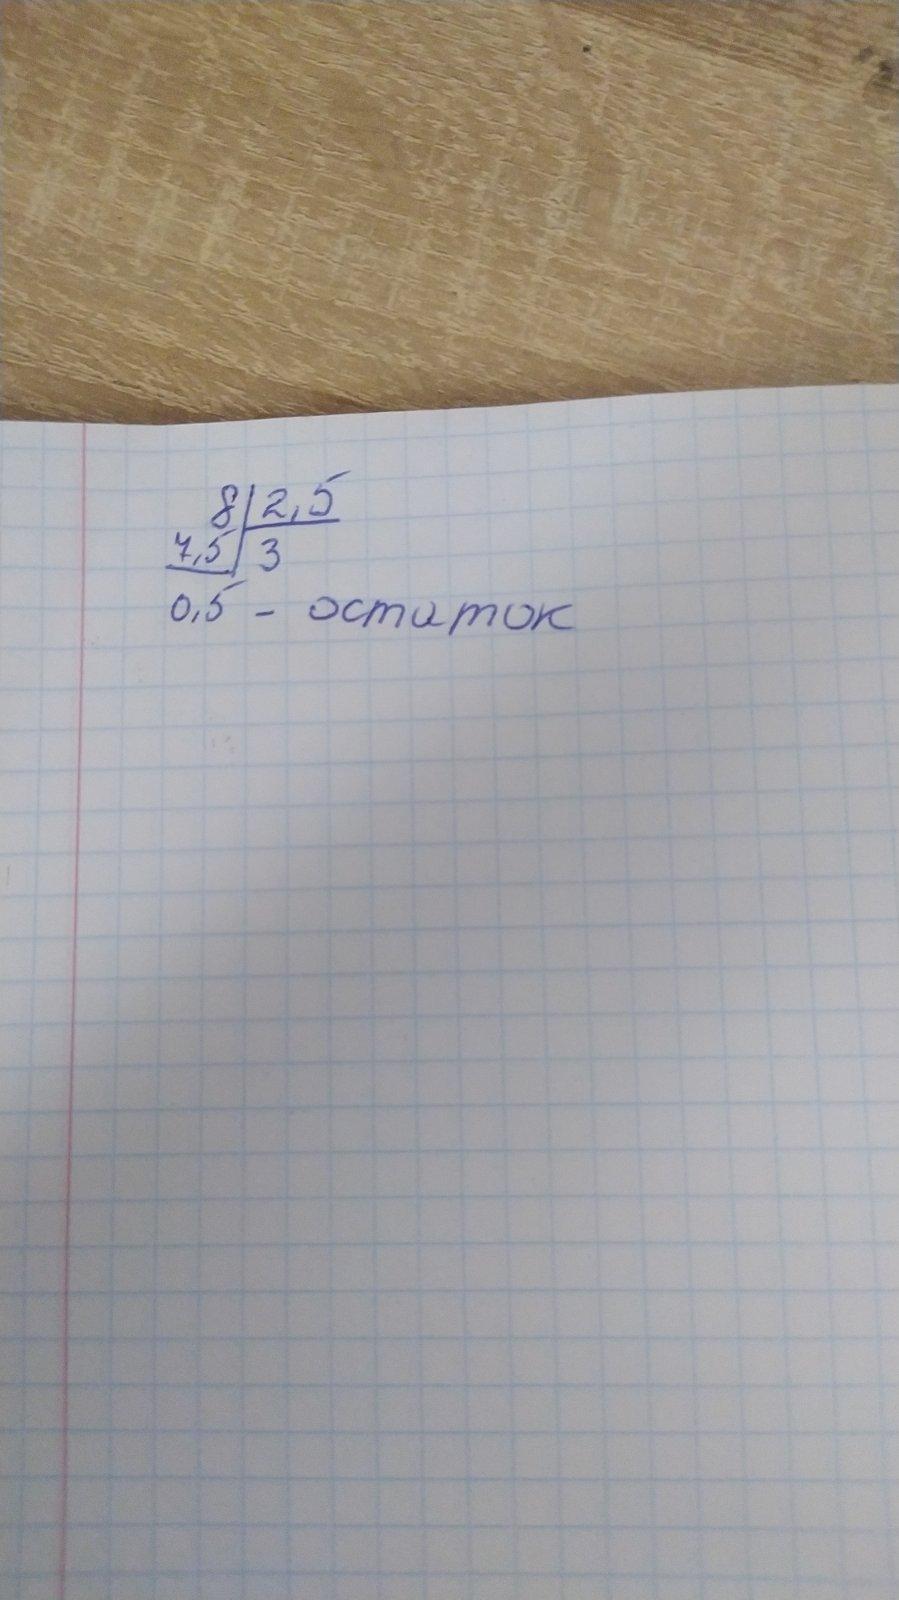 8 2,5
7,5 3
0,5 - остаток